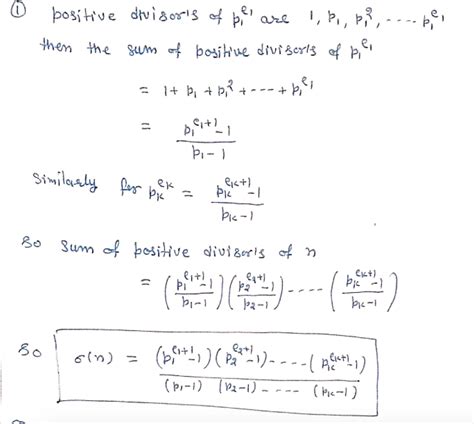 ① positive divisor's of p₁^e₁ are 1, p₁, p₁², ---- p₁^e₁
then the sum of positive divisor's of p₁^e₁
= 1 + p₁ + p₁² + --- + p₁^e₁
= (p₁^(e₁+1) - 1) / (p₁ - 1)
Similarly for pₖ^eₖ = (pₖ^(eₖ+1) - 1) / (pₖ - 1)
So sum of positive divisor's of n
= ((p₁^(e₁+1) - 1) / (p₁ - 1)) ((p₂^(e₂+1) - 1) / (p₂ - 1)) ---- ((pₖ^(eₖ+1) - 1) / (pₖ - 1))
So σ(n) = (p₁^(e₁+1) - 1) (p₂^(e₂+1) - 1) ---- (pₖ^(eₖ+1) - 1) / (p₁ - 1) (p₂ - 1) ---- (pₖ - 1)